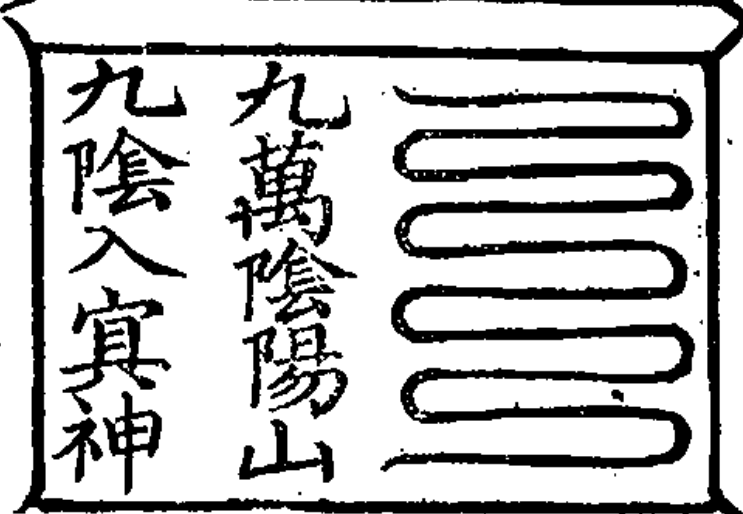 九萬陰陽山
九陰入寘神